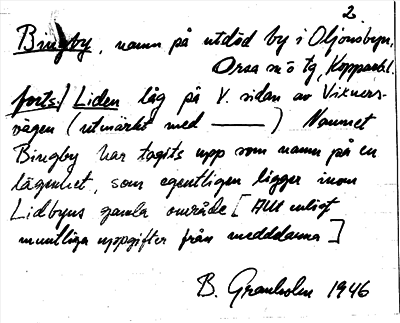 2.
Bingby, namn på utdöd by i Oljonsbyn,
Orsa sn ö tg, Kopparbl.
forts./ Liden låg på V. sidan av Vikners-
vägen (utmärkt med ———) Namnet
Bingby har tagits upp som namn på en
lägenhet, som egentligen ligger inom
Lidbyns gamla område [Allt enligt
muntliga uppgifter från medddarna]
B. Granholm 1946